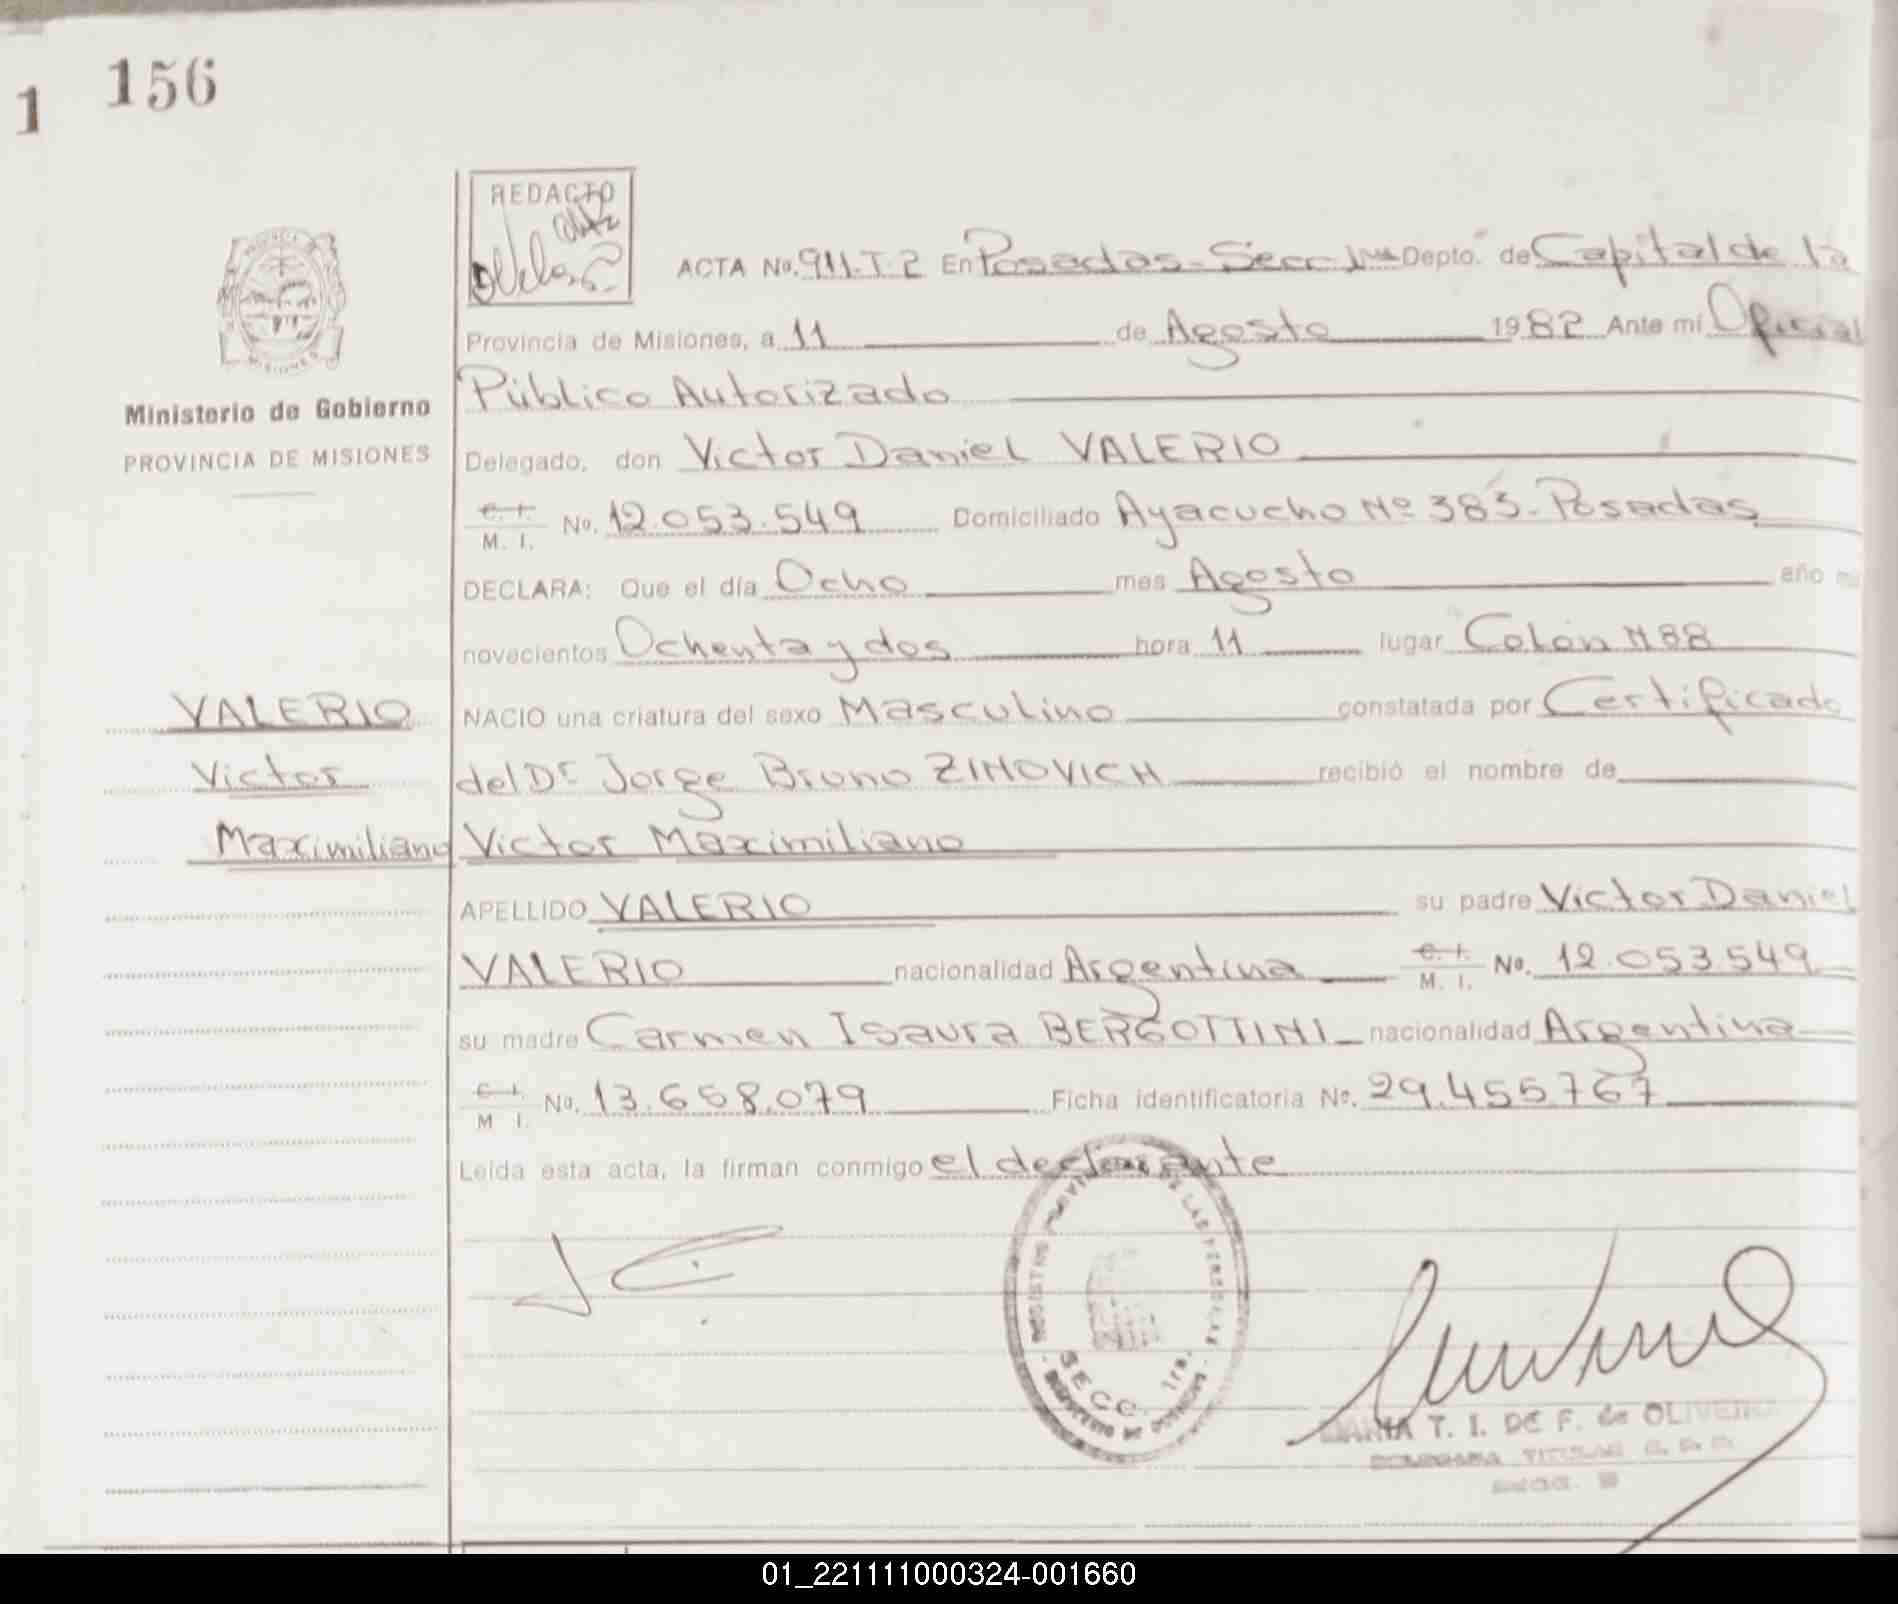 1 156
REDACTO
ACTA No. 911.T.2 En Posadas-Secc 1ra Depto. de Capital de la
Provincia de Misiones, a 11 de Agosto 1982 Ante mí Oficial
Público Autorizado
Ministerio de Gobierno
PROVINCIA DE MISIONES
Delegado, don Victor Daniel VALERIO
C. I. M. I. No. 12.053.549 Domiciliado Ayacucho Nº 383-Posadas
DECLARA: Que el día Ocho mes Agosto año mil
novecientos Ochenta y dos hora 11 lugar Colón N 88
VALERIO
NACIO una criatura del sexo Masculino constatada por Certificado
Victor
del Dr Jorge Bruno ZINOVICH recibió el nombre de
Maximiliano
Victor Maximiliano
APELLIDO VALERIO su padre Victor Daniel
VALERIO nacionalidad Argentina C. I. M. I. No. 12.053.549
su madre Carmen Isaura BERGOTTINI nacionalidad Argentina
C. I. M I. No. 13.658.079 Ficha identificatoria No. 29.455.767
Leída esta acta, la firman conmigo el declarante
DE LAS PERSONAS
SECC. 1ra.
MARIA T. I. DE F. de OLIVEIRA
DELEGADA TITULAR
01_221111000324-001660